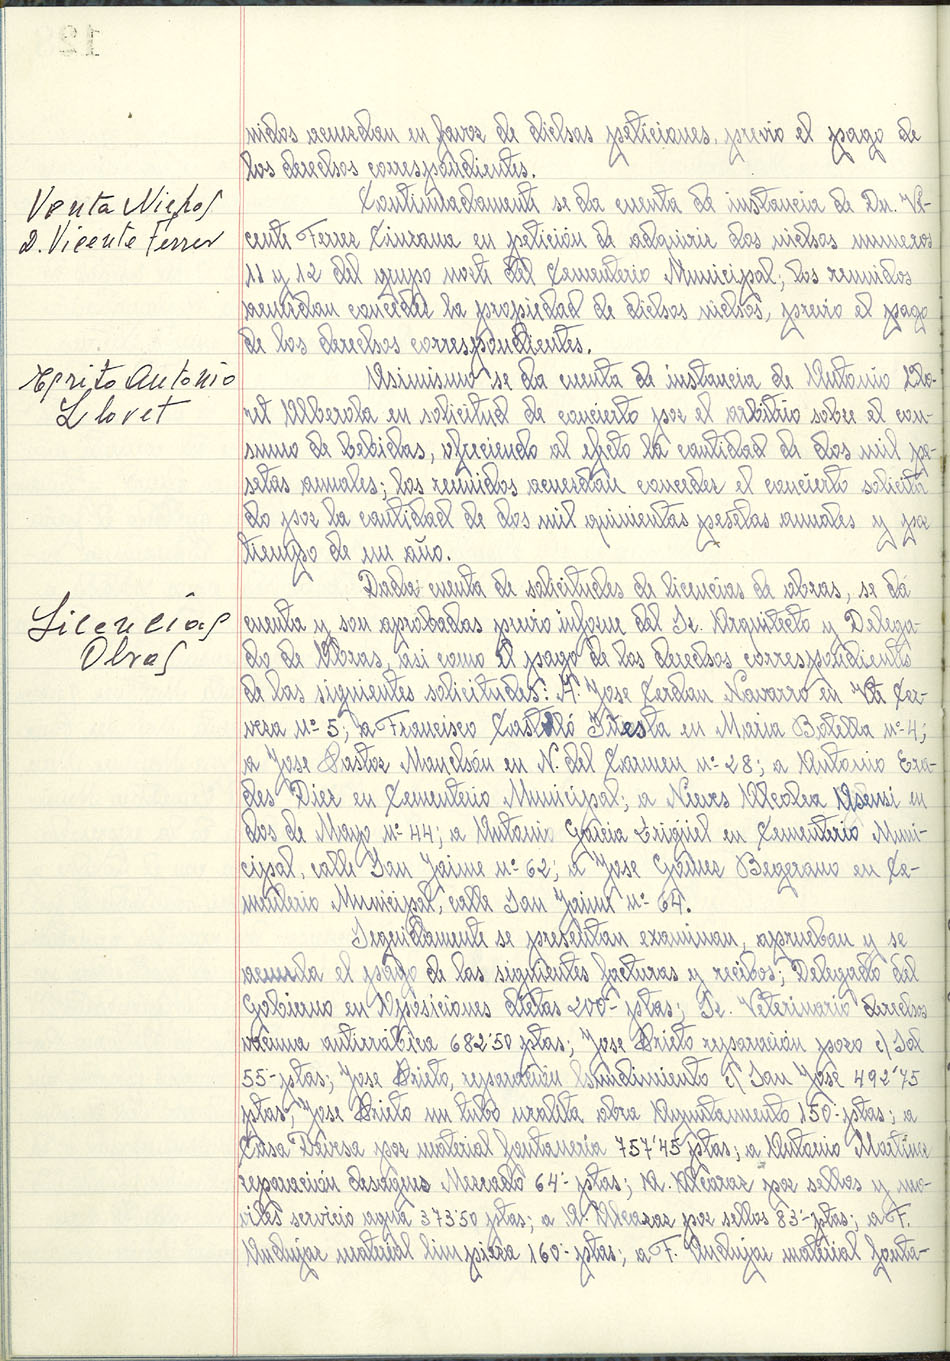 nidos acuerdan en favor de dichas peticiones, previo el pago de
los derechos correspondientes.
Venta Nichos
D. Vicente Ferrer
Continuadamente se da cuenta de instancia de Dn. Vi-
cente Ferrer Linzana en petición de adquirir dos nichos numeros
11 y 12 del grupo norte del Cementerio Municipal; los reunidos
acuerdan conceder la propiedad de dichos nichos, previo el pago
de los derechos correspondientes.
Antonio
Lloret
Asimismo se da cuenta de instancia de Antonio Llo-
ret Alberola en solicitud de concierto por el arbitrio sobre el con-
sumo de bebidas, ofreciendo al efecto la cantidad de dos mil pe-
setas anuales; los reunidos acuerdan conceder el concierto solicita
do por la cantidad de dos mil quinientas pesetas anuales y por
tiempo de un año.
Licencias
Obras
Dada cuenta de solicitudes de licencias de obras, se dá
cuenta y son aprobadas previo informe del Sr. Arquitecto y Delega-
do de Obras, asi como el pago de los derechos correspondientes
de las siguientes solicitudes: A Jose Cerdan Navarro en Vta Cer-
vera nº 5; a Francisco Castelló Iñesta en Maria Batella nº 4;
a Jose Pastor Manchón en N. del Carmen nº 28; a Antonio Era-
des Diez en Cementerio Municipal; a Nieves Alcolea Asensi en
dos de Mayo nº 44; a Antonio Garcia en Cementerio Muni-
cipal, calle San Jaime nº 62; a Jose Gomes Begerano en Ce-
menterio Municipal, calle San Jaime nº 64.
Seguidamente se presentan examinan, aprueban y se
acuerda el pago de las siguientes facturas y recibos; Delegado del
Gobierno en Oposiciones dietas 200'- ptas; Sr. Veterinario derechos
vacuna antirrabica 682'50 ptas; Jose Prieto reparación pozo c/ Sol
55'-ptas; Jose Prieto, reparación hundimiento c/ San José 492'75
ptas; Jose Prieto un tubo uralita obra Ayuntamiento 150'-ptas; a
Casa Devesa por material fontaneria 757'45 ptas; a Antonio Martinez
reparación desagüe Mercado 64'- ptas; A. Alcaraz por sellos y mo-
viles servicio agua 373'50 ptas; a A. Alcaraz por sellos 83'-ptas; a F.
Andujar material limpieza 160'- ptas; a F. Andujar material fonta-